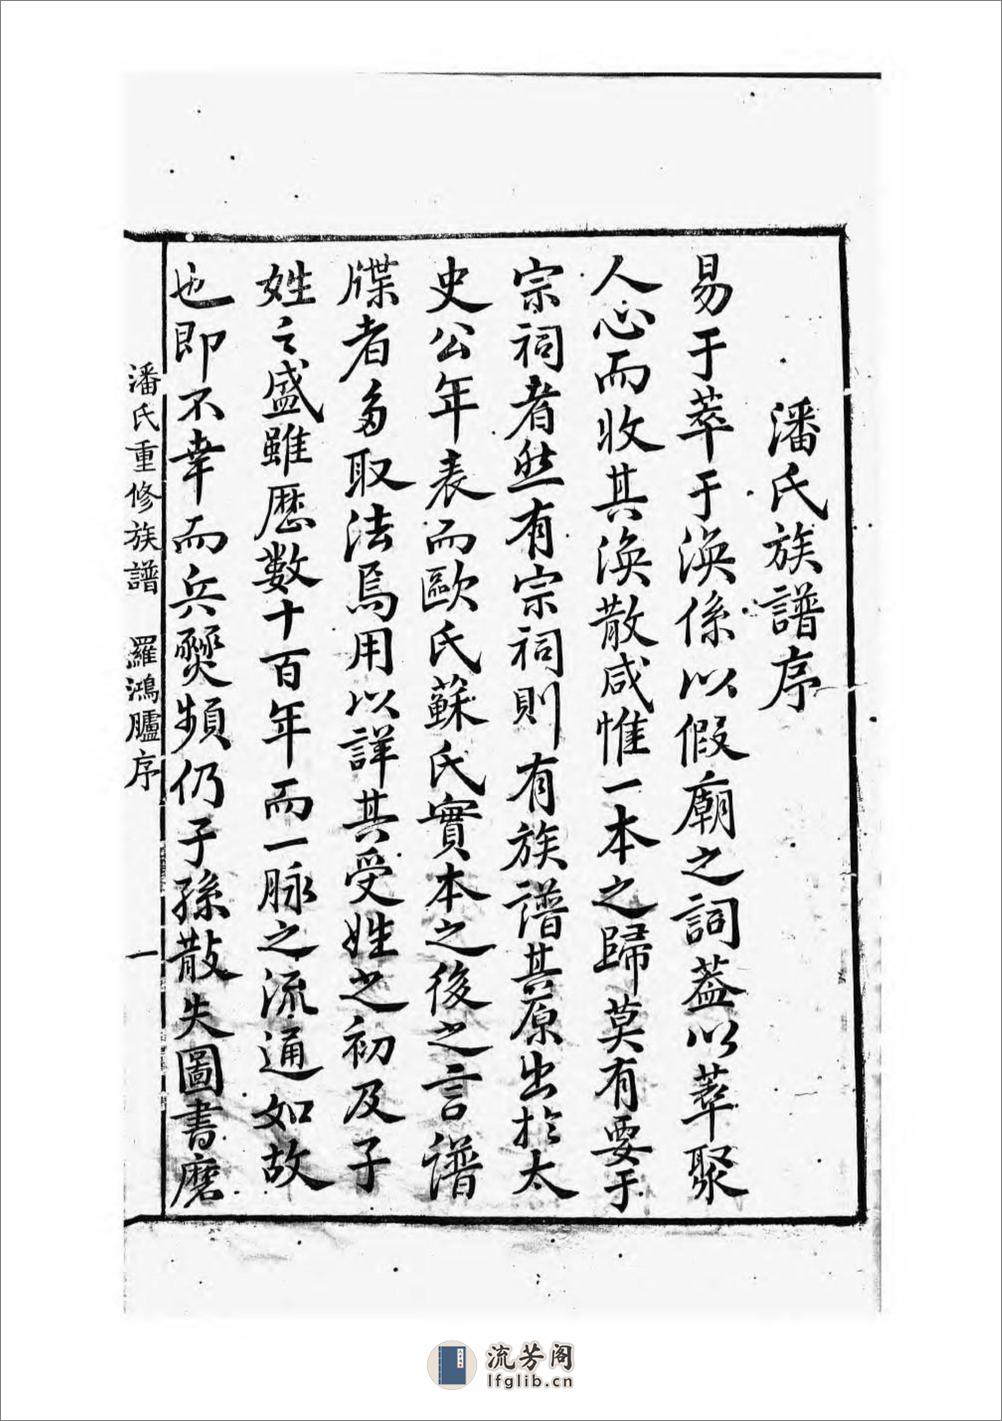 潘氏族譜序
易于萃于渙係以假廟之詞蓋以萃聚
人心而收其渙散咸惟一本之歸莫有要于
宗祠者然有宗祠則有族譜其原出於太
史公年表而歐氏蘇氏實本之後之言譜
牒者多取法焉用以詳其受姓之初及子
姓之盛雖歷數十百年而一脉之流通如故
也即不幸而兵燹頻仍子孫散失圖書磨
潘氏重修族譜 羅鴻臚序 一
流芳阁
lfglib.cn